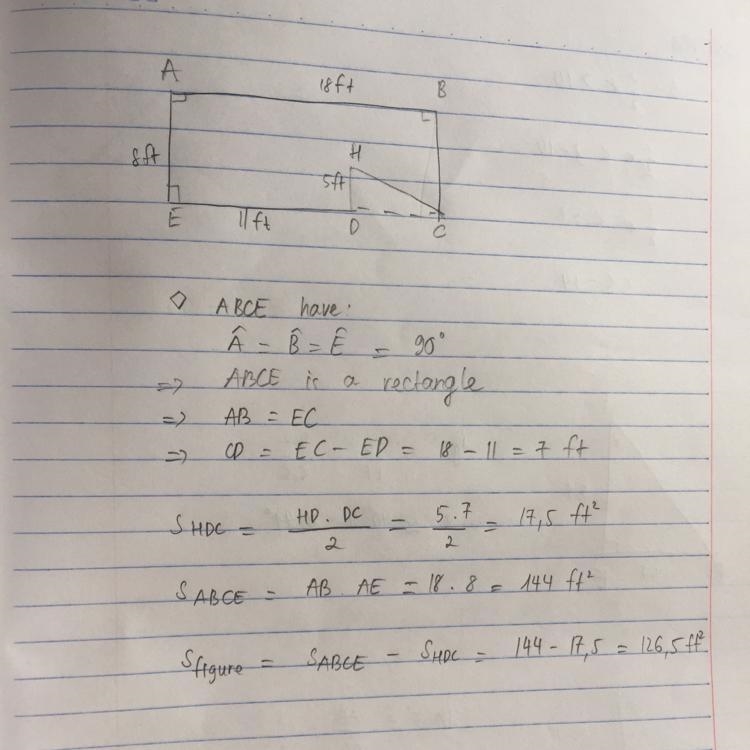 A
18ft
B
8ft
H
5ft
E
11ft
D
C
◇ ABCE have:
Â = B̂ = Ê = 90°
=> ABCE is a rectangle
=> AB = EC
=> CD = EC - ED = 18 - 11 = 7 ft
S_HDC = HD . DC / 2 = 5 . 7 / 2 = 17,5 ft²
S_ABCE = AB . AE = 18 . 8 = 144 ft²
S_figure = S_ABCE - S_HDC = 144 - 17,5 = 126,5 ft²